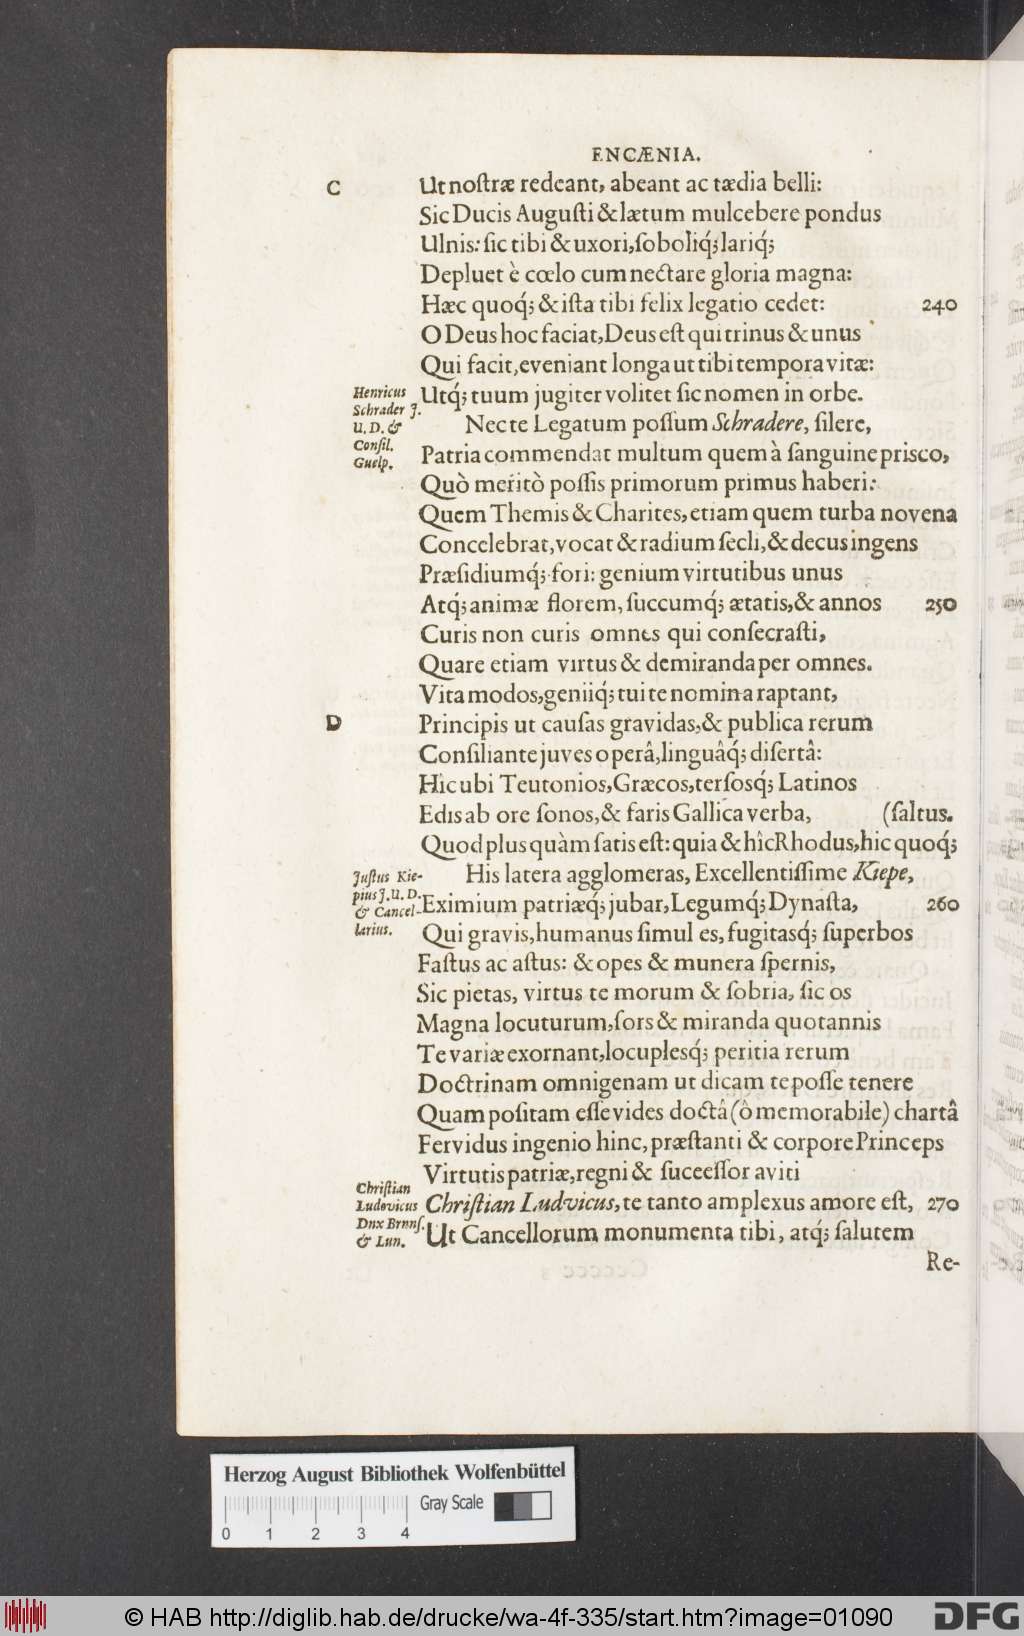 ENCÆNIA.
C Ut noſtræ redeant, abeant ac tædia belli:
Sic Ducis Auguſti & lætum mulcebere pondus
Ulnis: ſic tibi & uxori, ſoboliq́; lariq́;
Depluet è cœlo cum nectare gloria magna:
Hæc quoq́; & iſta tibi felix legatio cedet: 240
O Deus hoc faciat, Deus eſt qui trinus & unus
Qui facit, eveniant longa ut tibi tempora vitæ:
Utq́; tuum jugiter volitet ſic nomen in orbe.
Henricus
Schrader J.
U. D. &
Conſil.
Guelp.
Nec te Legatum poſſum Schradere, ſilere,
Patria commendat multum quem à ſanguine priſco,
Quò meritò poſſis primorum primus haberi:
Quem Themis & Charites, etiam quem turba novena
Concelebrat, vocat & radium ſecli, & decus ingens
Præſidiumq́; fori: genium virtutibus unus
Atq́; animæ florem, ſuccumq́; ætatis, & annos 250
Curis non curis omnes qui conſecraſti,
Quare etiam virtus & demiranda per omnes.
Vita modos, geniiq́; tui te nomina raptant,
D Principis ut cauſas gravidas, & publica rerum
Conſiliante juves operâ, linguâq́; diſertâ:
Hic ubi Teutonios, Græcos, terſosq́; Latinos
Edis ab ore ſonos, & faris Gallica verba, (ſaltus.
Quod plus quàm ſatis eſt: quia & hîc Rhodus, hic quoq́;
Juſtus Kie-
pius J. U. D.
& Cancel-
larius.
His latera agglomeras, Excellentiſſime Kiepe,
Eximium patriæq́; jubar, Legumq́; Dynaſta, 260
Qui gravis, humanus ſimul es, fugitasq́; ſuperbos
Faſtus ac aſtus: & opes & munera ſpernis,
Sic pietas, virtus te morum & ſobria, ſic os
Magna locuturum, ſors & miranda quotannis
Te variæ exornant, locuplesq́; peritia rerum
Doctrinam omnigenam ut dicam te poſſe tenere
Quam poſitam eſſe vides doctâ (ô memorabile) chartâ
Fervidus ingenio hinc, præſtanti & corpore Princeps
Virtutis patriæ, regni & ſucceſſor aviti
Chriſtian
Ludovicus
Dux Brnnſ.
& Lun.
Chriſtian Ludvicus, te tanto amplexus amore eſt, 270
Ut Cancellorum monumenta tibi, atq́; ſalutem
Re-
Herzog August Bibliothek Wolfenbüttel
Gray Scale
0 1 2 3 4
© HAB http://diglib.hab.de/drucke/wa-4f-335/start.htm?image=01090
DFG